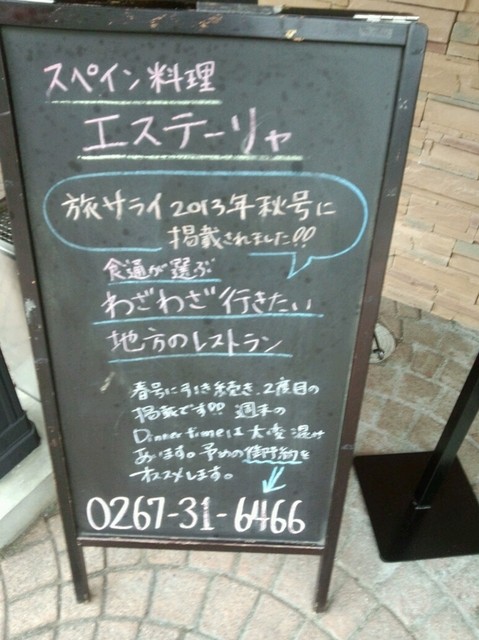 スペイン料理
エステーリャ
旅サライ2013年秋号に
掲載されました!!
食通が選ぶ
わざわざ行きたい
地方のレストラン
春号に引き続き、2度目の
掲載です!! 週末の
Dinner timeは大変混み
あいます。予めの御予約を
オススメします。
0267-31-6466